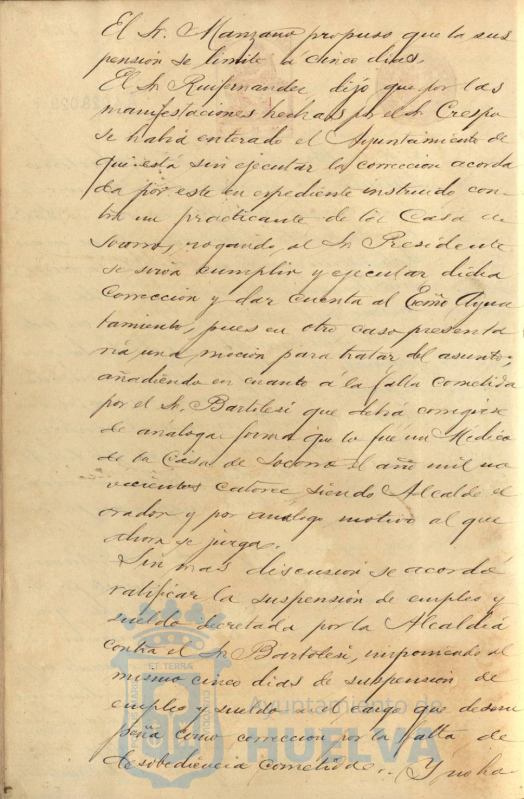 El Sr. Manzano propuso que la sus
pensión se limite á cinco dias.
El Sr Ruifernandez dijó que por las
manifestaciones hechas por el Sr Crespo
se había enterado el Ayuntamiento de
que está sin ejecutar la correccion acorda
da por este en expediente instruido con-
tra un practicante de la Casa de
Socorro, rogando al Sr Presidente
se sirva cumplir y ejecutar dicha
correccion y dar cuenta al Excmo Ayun
tamiento, pues en otro caso presenta
ría una moción para tratar del asunto;
añadiendo en cuanto á la falta cometida
por el Sr. Bartolesi que debía corregirse
de análoga forma que lo fué un Medico
de la Casa de Socorro el año mil no
vecientos catorce, siendo Alcalde el
orador y por análogo motivo al que
ahora se juzga.
Sin mas discusion se acordó
ratificar la suspensión de empleo y
sueldo decretada por la Alcaldía
contra el Sr Bartolesi, imponiendo al
mismo cinco dias de suspensión de
empleo y sueldo en el cargo que desem
peña como correccion por la falta de
desobediencia cometida. Y no ha
ET TERRA
Ayuntamiento de
HUELVA